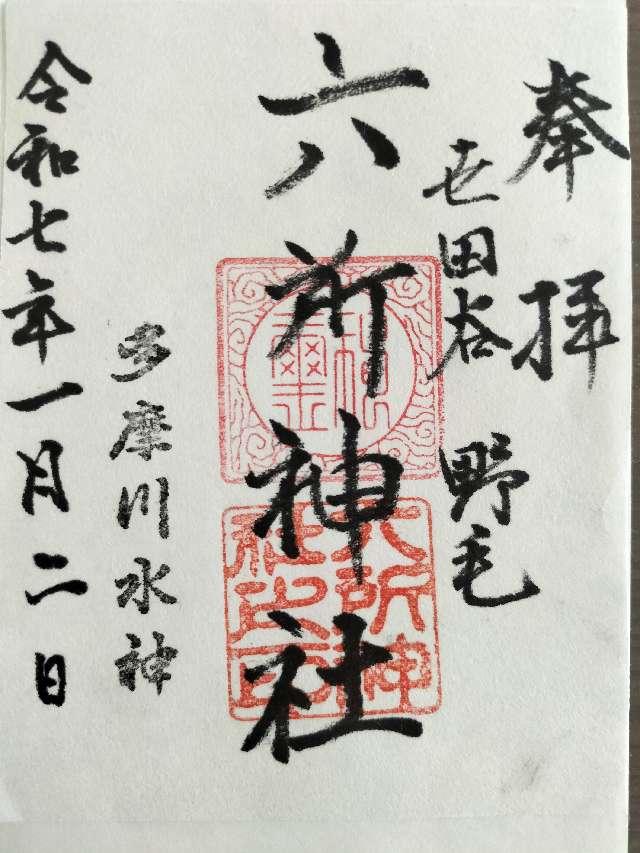 奉拝
世田谷 野毛
六所神社
神璽
六所神社之印
多摩川水神
令和七年一月二日